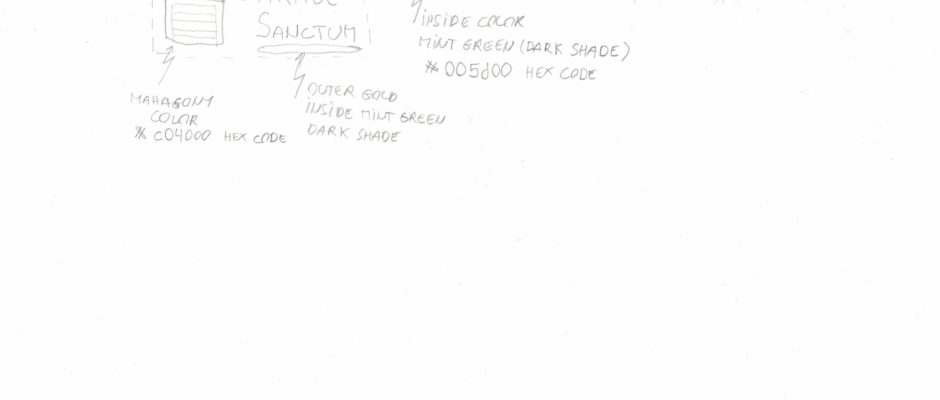 SANCTUM
INSIDE COLOR
MINT GREEN (DARK SHADE)
* 005d00 HEX CODE
OUTER GOLD
INSIDE MINT GREEN
DARK SHADE
MAHAGONY
COLOR
* C04000 HEX CODE